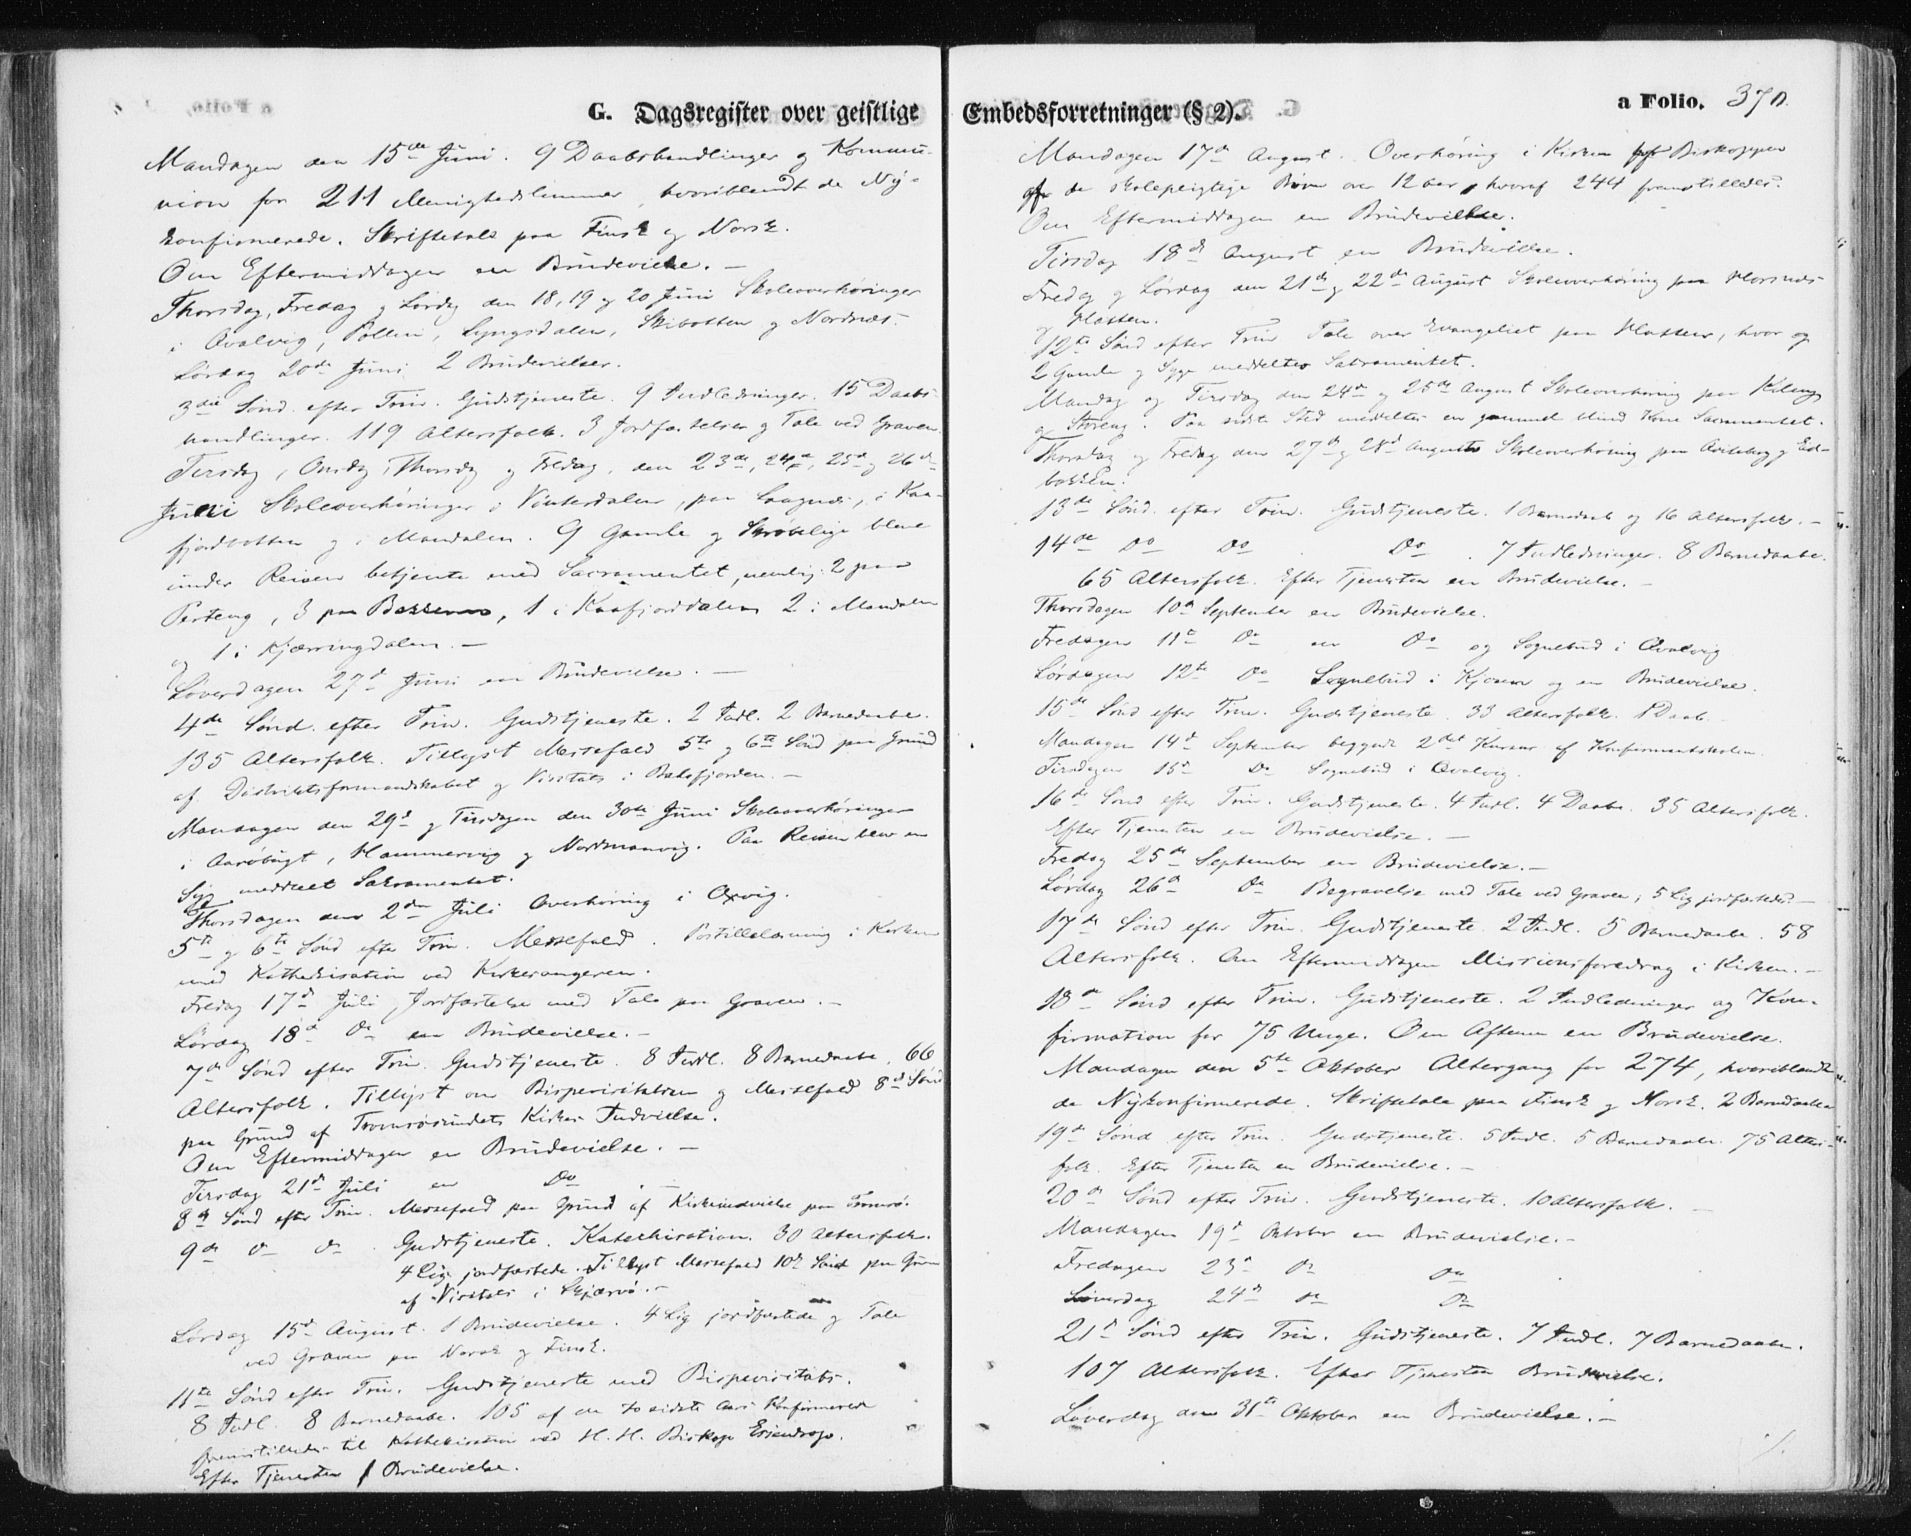 G. Dagsregister over geistlige
Mandagen den 15de Juni. 9 Daabshandlinger og Kommu-
nion for 211 Menighedslemmer, hvoriblandt de Ny-
konfirmerede. Skriftetale paa Finsk og Norsk.
Om Eftermiddagen en Brudevielse. —
Thorsdag, Fredag og Lørdag den 18, 19 og 20 Juni Skoleoverhøringer
i Qvalvig, Pollen, Lyngsdalen, Skibotten og Nordnæs.
Lørdag 20de Juni 2 Brudevielser.
3die Sønd. efter Trin. Gudstjeneste. 9 Indledninger. 15 Daabs-
handlinger. 119 Altersfolk. 3 Jordfæstelser og Tale ved Graven.
Tirsdag, Onsdag, Thorsdag og Fredag, den 23de, 24de, 25d og 26de
Juni Skoleoverhøringer i Vinterdalen, paa Langnæs, i Kaa-
fjordbotten og i Mandalen. 9 Gamle og Skrøbelige bleve
under Reisen betjente med Sacramentet, nemlig: 2 paa
Perteng, 3 paa, 1 i Kaafjorddalen 2 i Mandalen
og 1 i Kjærringdalen. —
Løverdagen 27d Juni en Brudevielse. —
4de Sønd. efter Trin. Gudstjeneste. 2 Indl. 2 Barnedaabe.
135 Altersfolk. Tillyst Messefald 5te og 6te Sønd paa Grund
af Distriktsformandskabet og Visitats i Balsfjorden. —
Mandagen den 29d og Tirsdagen den 30te Juni Skoleoverhøringer
i Aarøbugt, Hammervig og Nordmanvig. Paa Reisen blev en
Syg meddelt Sakramentet.
Thorsdagen den 2den Juli Overhøring i Oxvig.
5te og 6te Sønd efter Trin. Messefald. Postillelæsning i Kirken
med Kathekisation ved Kirkesangeren.
Fredag 17d Juli Jordfæstelse med Tale paa Graven. —
Lørdag 18d Do en Brudevielse. —
7de Sønd efter Trin. Gudstjeneste. 8 Indl. 8 Barnedaabe. 66
Altersfolk. Tillyst om Bispevisitatsen og Messefald 8d Sønd
paa Grund af Tromsøsundets Kirkes Indvielse.
Om Eftermiddagen en Brudevielse. —
Tirsdag 21de Juli en Do. —
8de Sønd efter Trin. Messefald paa Grund af Kirkeindvielse paa Tromsø.
9de Do Do. Gudstjeneste. Katechisation. 30 Altersfolk.
4 Lig jordfæstede. Tillyst Messefald 10de Sønd paa Grund
af Visitats i Skjærvø. —
Lørdag 15d August. 1 Brudevielse. 4 Lig jordfæstede og Tale
ved Graven paa Norsk og Finsk.
11te Sønd efter Trin. Gudstjeneste med Bispevisitats.
8 Indl. 8 Barnedaabe. 105 af de to sidste Aars Konfirmerede
fremstilledes til Kathekisation ved H. H. Biskop.
Efter Tjenesten 1 Brudevielse.
Embedsforretninger (§ 2).
a Folio. 370.
Mandagen 17de August. Overhøring i Kirken for Biskoppen
af de skolepligtige Børn over 12 Aar, hvoraf 244 fremstilledes.
Om Eftermiddagen en Brudevielse.
Tirsdag 18de August en Brudevielse.
Fredag og Lørdag den 21de og 22de August Skoleoverhøring paa Horsnæs
og Hatten.
12te Sønd efter Trin Tale over Evangeliet paa Hatten, hvor og
2 Gamle og Syge meddeltes Sakramentet.
Mandag og Tirsdag den 24de og 25de August Skoleoverhøring paa Kileng
og Storeng. Paa sidste Sted meddeltes en gammel blind Kone Sacramentet.
Thorsdag og Fredag den 27de og 28d August Skoleoverhøring paa og Eid-
bakken.
13de Sønd. efter Trin. Gudstjeneste. 1 Barnedaab og 16 Altersfolk. —
14de Do Do Do. 7 Indledninger. 8 Barnedaabe.
65 Altersfolk. Efter Tjenesten en Brudevielse. —
Thorsdagen 10d September en Brudevielse.
Fredagen 11te Do en Do og Sognebud i Qvalvig
Lørdagen 12te Do Sognebud i Kjosen og en Brudevielse.
15de Sønd efter Trin. Gudstjeneste. 33 Altersfolk. 1 Daab.
Mandagen 14d September begyndte 2det Kursus af Konfirmantskolen.
Tirsdagen 15d Do Sognebud i Qvalvig.
16de Sønd efter Trin. Gudstjeneste. 4 Indl. 4 Daabe. 35 Altersfolk.
Efter Tjenesten en Brudevielse. —
Fredag 25de September en Brudevielse. —
Lørdag 26d Do Begravelse med Tale ved Graven; 5 Lig jordfæstedes. —
17de Sønd efter Trin. Gudstjeneste. 2 Indl. 5 Barnedaabe. 58
Altersfolk. Om Eftermiddagen Missionsforedrag i Kirken. —
18de Sønd efter Trin. Gudstjeneste. 2 Indledninger og Kon-
firmation for 75 Unge. Om Aftenen en Brudevielse.
Mandagen den 5te Oktober Altergang for 274, hvoriblandt
de Nykonfirmerede. Skriftetale paa Finsk og Norsk. 2 Barnedaabe
19de Sønd efter Trin. Gudstjeneste. 5 Indl. 5 Barnedaabe. 75 Alters-
folk. Efter Tjenesten en Brudevielse. —
20de Sønd efter Trin. Gudstjeneste. 10 Altersfolk. —
Mandagen 19d Oktober en Brudevielse. —
Fredagen 23d Do Do
Løverdag 24d Do Do
21d Sønd efter Trin. Gudstjeneste. 7 Indl. 7 Barnedaabe.
107 Altersfolk. Efter Tjenesten Brudevielse.
Løverdag den 31te Oktober en Brudevielse. —